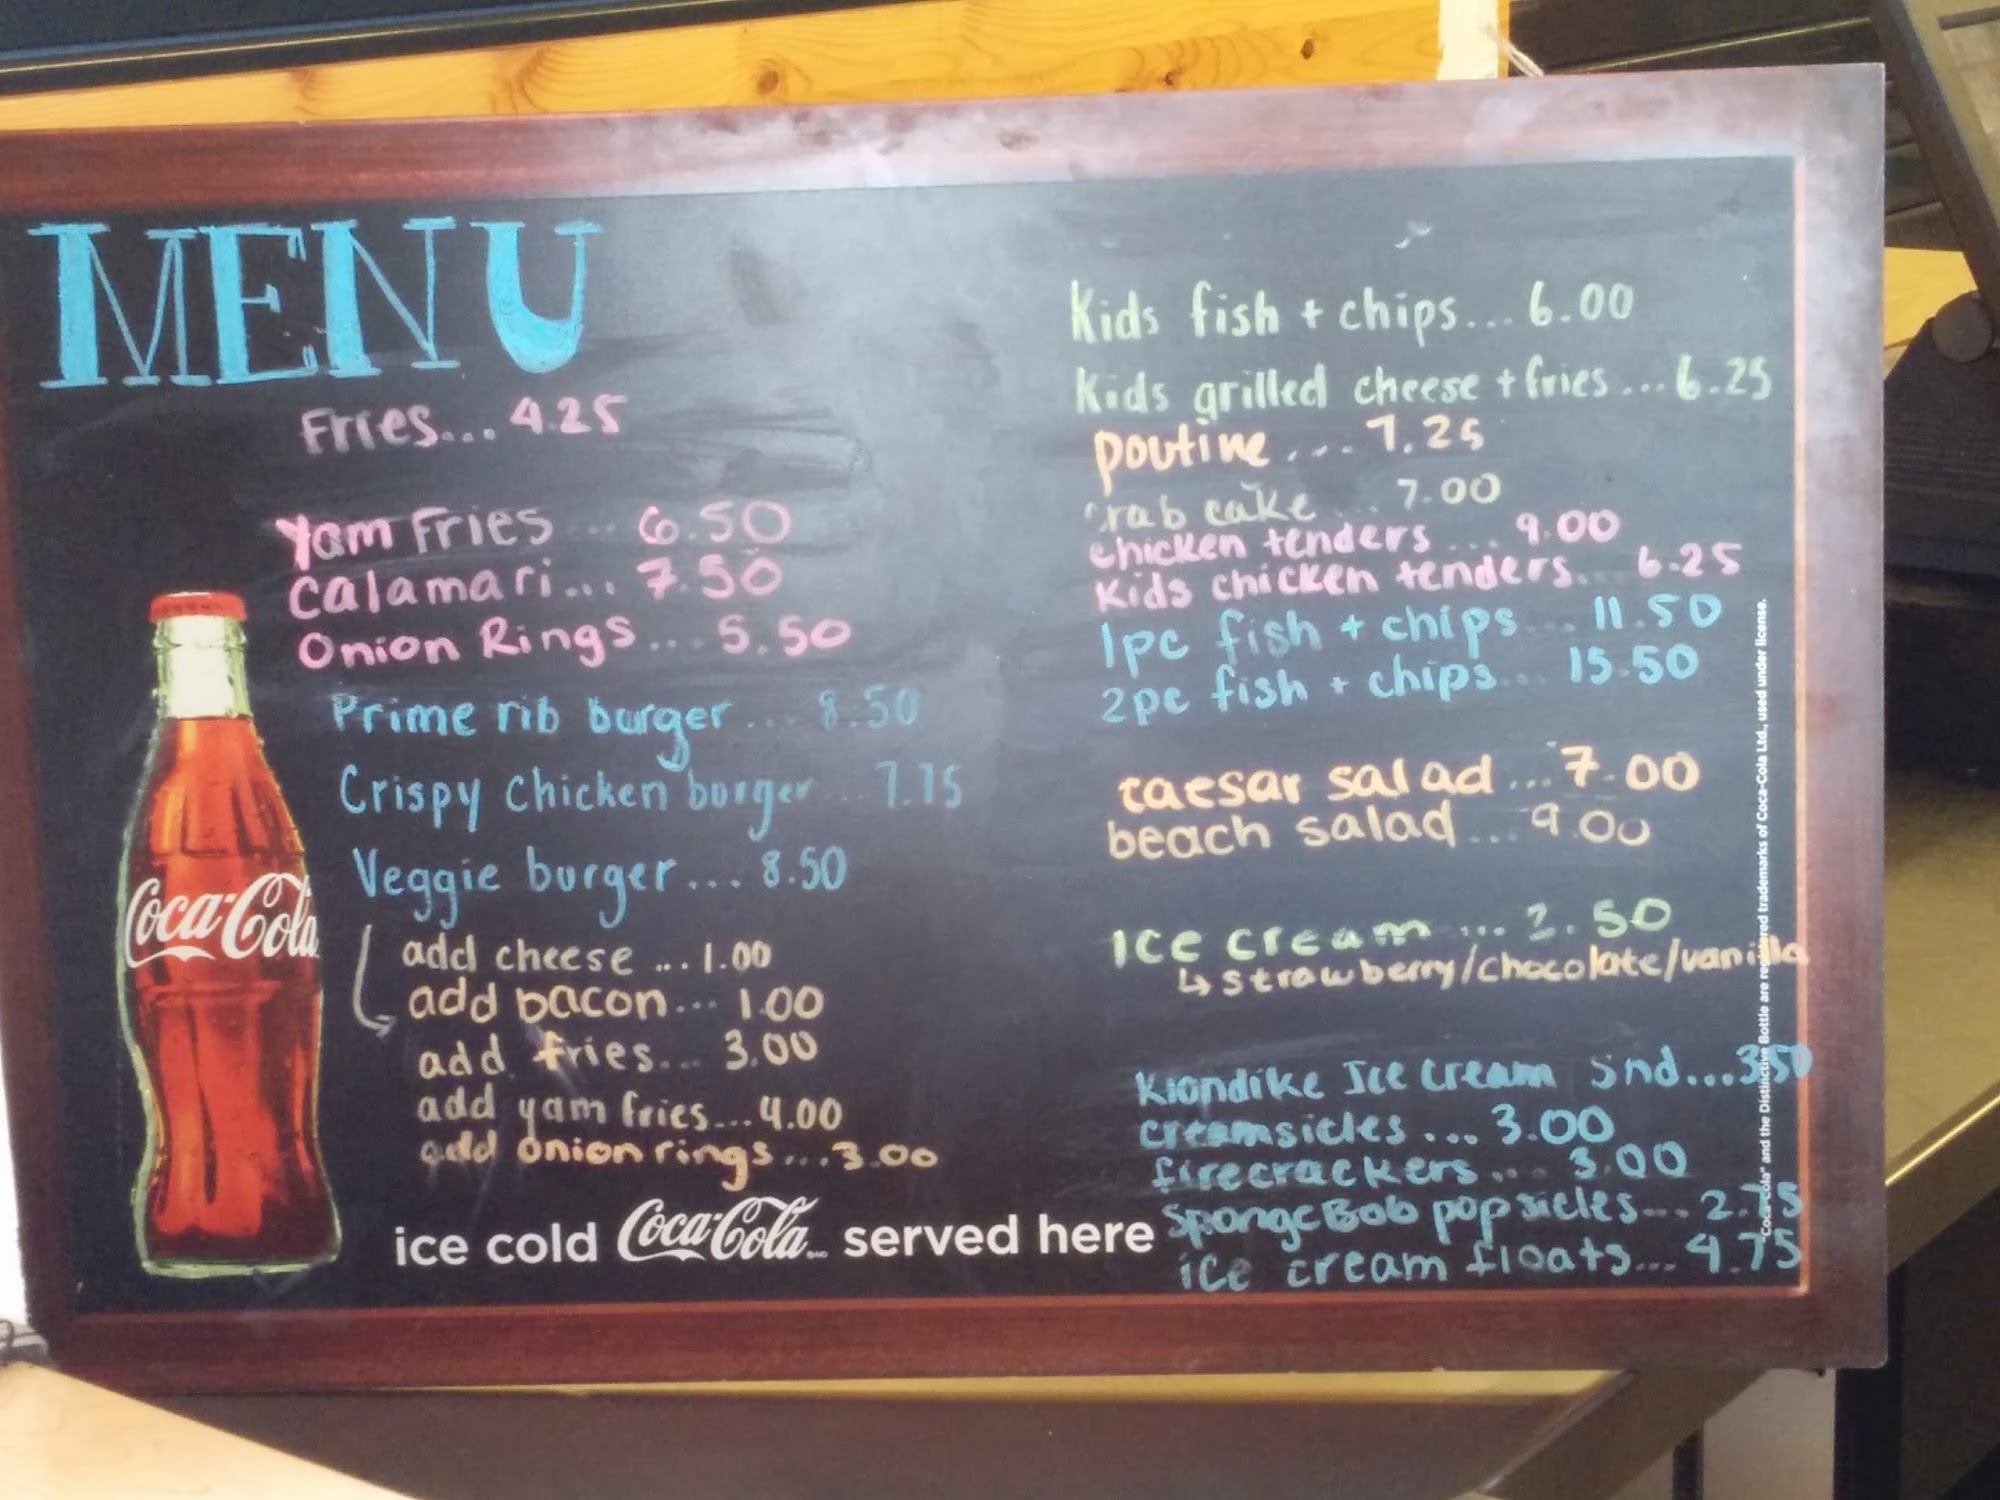 MENU
Fries... 4.25
Yam Fries ... 6.50
Calamari... 7.50
Onion Rings... 5.50
Prime rib burger ... 8.50
Crispy Chicken burger ... 7.75
Veggie burger... 8.50
add cheese ... 1.00
add bacon... 1.00
add fries... 3.00
add yam fries... 4.00
add onion rings... 3.00
Coca-Cola
ice cold Coca-Cola served here
Kids fish + chips... 6.00
Kids grilled cheese + fries ... 6.25
poutine ... 7.25
crab cake ... 7.00
chicken tenders ... 9.00
Kids chicken tenders... 6.25
1pc fish + chips... 11.50
2pc fish + chips... 15.50
caesar salad ... 7.00
beach salad ... 9.00
Ice cream ... .50
↳ strawberry/chocolate/vanilla
Klondike Ice cream snd...3.50
creamsicles ... 3.00
firecrackers ... 3.00
SpongeBob popsicles... 2.75
ice cream floats... 4.75
"Coca-Cola" and the Distinctive Bottle are registered trademarks of Coca-Cola Ltd., used under license.